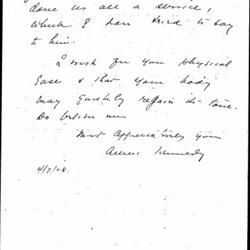 done us all a service,
which I have tried to say
to him.
I wish for you physical
ease & that your body
may quickly regain its tone.
Do believe me
Most Appreciatively yours
Kennedy
4/7/68.